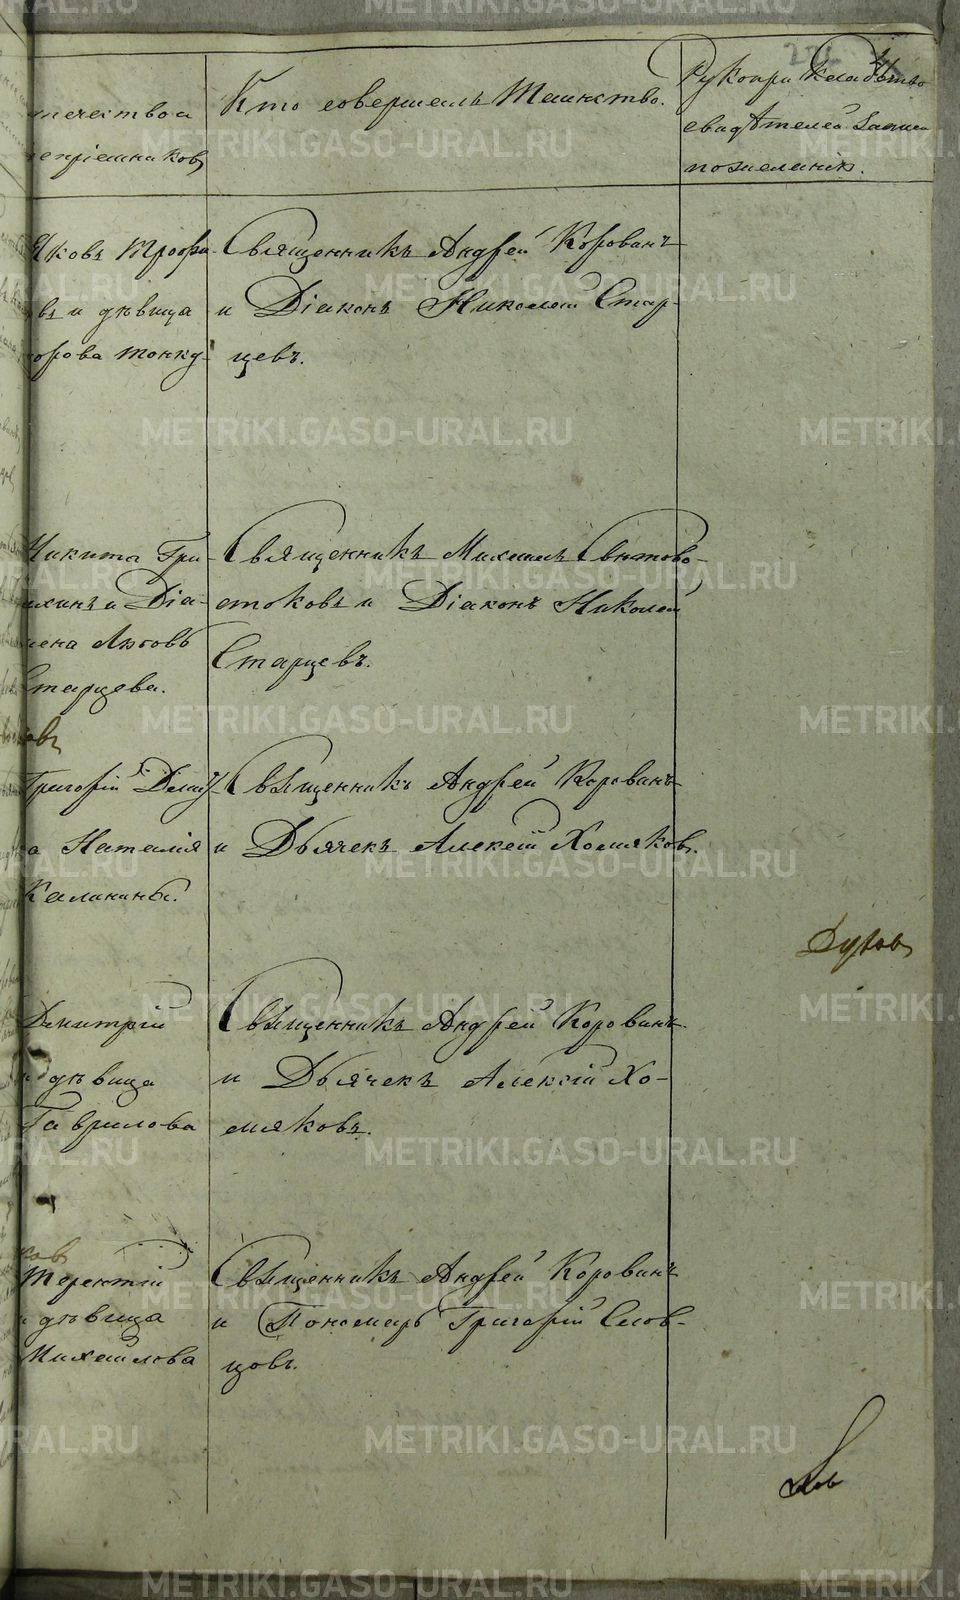 отчества
воспріемниковъ
Кто совершалъ Таинство.
Рукоприкладство
свидѣтелей записи
по желанію.
Яковъ Трофи-
въ и дѣвица
Священникъ Андрей Корованъ
и Діаконъ Николай Стар-
цевъ.
Никита Гри-
и Діа-
Любовь
Старцева.
Священникъ Михаилъ Свѣтово-
стоковъ и Діаконъ Николай
Старцевъ.
Григорій
Наталія
Калинины.
Священникъ Андрей Корованъ
и Дьячекъ Алексій Хомяковъ.
Духов
Димитрій
и дѣвица
Гаврилова
Священникъ Андрей Корованъ
и Дьячекъ Алексій Хо-
мяковъ.
Терентій
и дѣвица
Михайлова
Священникъ Андрей Корованъ
и Пономарь Григорій Слов-
цовъ.
METRIKI.GASO-URAL.RU